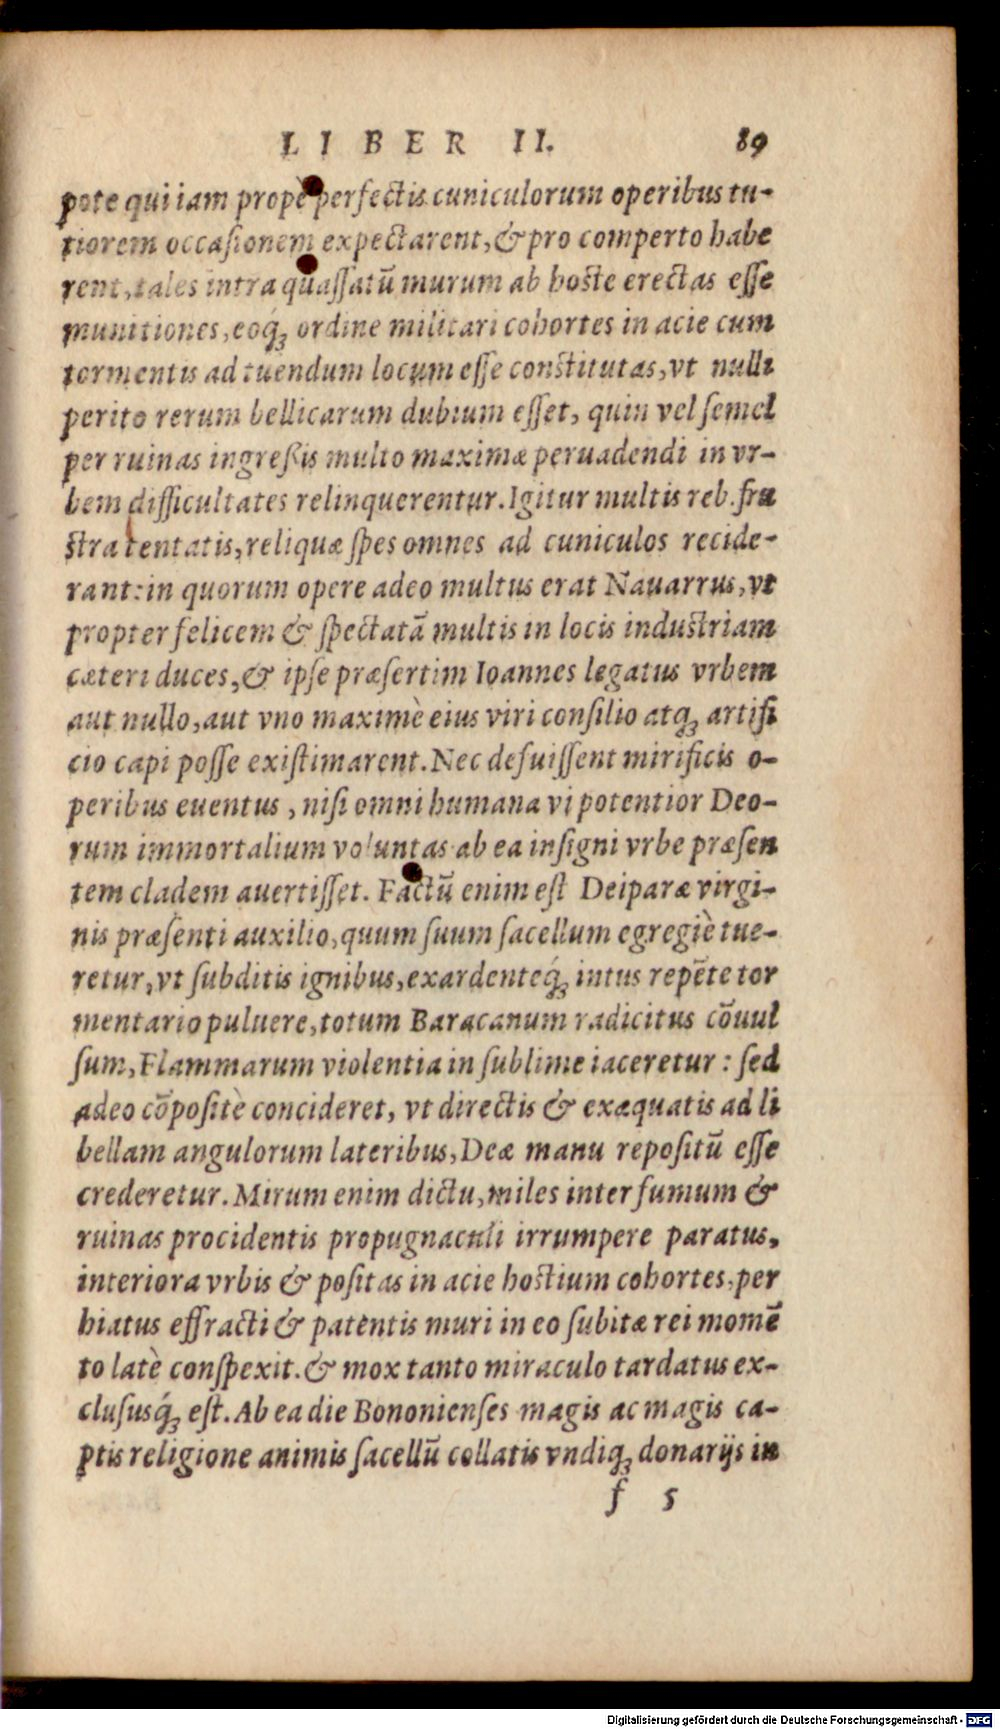 LIBER II. 89
pote qui iam propè perfectis cuniculorum operibus tu-
tiorem occasionem expectarent, & pro comperto habe
rent, tales intra quassatū murum ab hoste erectas esse
munitiones, eoq́; ordine militari cohortes in acie cum
tormentis ad tuendum locum esse constitutas, vt nulli
perito rerum bellicarum dubium esset, quin vel semel
per ruinas ingreßis multo maximæ peruadendi in vr-
bem difficultates relinquerentur. Igitur multis reb. fru
stra tentatis, reliquæ spes omnes ad cuniculos recide-
rant: in quorum opere adeo multus erat Nauarrus, vt
propter felicem & spectatā multis in locis industriam
cæteri duces, & ipse præsertim Ioannes legatus vrbem
aut nullo, aut vno maximè eius viri consilio atq; artifi
cio capi posse existimarent. Nec defuissent mirificis o-
peribus euentus, nisi omni humana vi potentior Deo-
rum immortalium voluntas ab ea insigni vrbe præsen
tem cladem auertisset. Factū enim est Deiparæ virgi-
nis præsenti auxilio, quum suum sacellum egregiè tue-
retur, vt subditis ignibus, exardenteq́; intus repēte tor
mentario puluere, totum Baracanum radicitus cōuul
sum, Flammarum violentia in sublime iaceretur: sed
adeo cōpositè concideret, vt directis & exæquatis ad li
bellam angulorum lateribus, Deæ manu repositū esse
crederetur. Mirum enim dictu, miles inter fumum &
ruinas procidentis propugnaculi irrumpere paratus,
interiora vrbis & positas in acie hostium cohortes, per
hiatus effracti & patentis muri in eo subitæ rei momē
to latè conspexit. & mox tanto miraculo tardatus ex-
clususq́; est. Ab ea die Bononienses magis ac magis ca-
ptis religione animis sacellū collatis vndiq; donarijs in
f 5
Digitalisierung gefördert durch die Deutsche Forschungsgemeinschaft - DFG